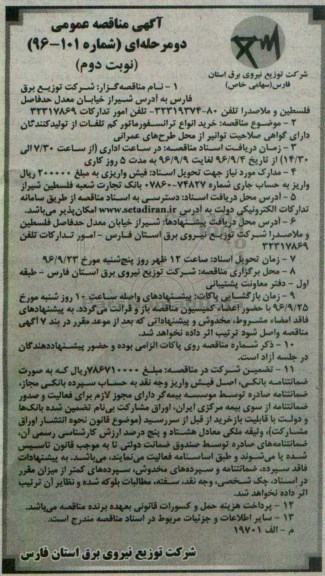 آگهی مناقصه عمومی
دومرحله‌ای (شماره ۱۰۱-۹۶)
(نوبت دوم)
شرکت توزیع نیروی برق استان
فارس(سهامی خاص)
۱ - نام مناقصه‌گزار: شرکت توزیع برق
فارس به آدرس شیراز خیابان معدل حدفاصل
فلسطین و ملاصدرا تلفن ۸۰-۳۲۳۱۹۳۷۴- تلفن امور تدارکات ۳۲۳۱۷۸۶۹
۲ - موضوع مناقصه: خرید انواع ترانسفورماتور کم تلفات از تولیدکنندگان
دارای گواهی صلاحیت توانیر از محل طرح‌های عمرانی
۳ - زمان دریافت اسناد مناقصه: در ساعت اداری (از ساعت ۷/۳۰ الی
۱۴/۳۰) از تاریخ ۹۶/۹/۴ لغایت ۹۶/۹/۹ به مدت ۵ روز کاری
۴ - مدارک مورد نیاز جهت تحویل اسناد: فیش واریزی به مبلغ ۲۰۰۰۰۰ ریال
واریز به حساب جاری شماره ۰۷۸۶۰۰۷۴۸۲۷ بانک تجارت شعبه فلسطین شیراز
۵ - آدرس محل دریافت اسناد: دسترسی به اسناد مناقصه از طریق سامانه
تدارکات الکترونیکی دولت به آدرس www.setadiran.ir امکان‌پذیر می‌باشد.
۶ - آدرس محل دریافت پیشنهادها: شیراز خیابان معدل حدفاصل فلسطین
و ملاصدرا شرکت توزیع نیروی برق استان فارس - امور تدارکات تلفن
۳۲۳۱۷۸۶۹
۷ - زمان تحویل اسناد: ساعت ۱۲ ظهر روز پنج‌شنبه مورخ ۹۶/۹/۲۳
۸ - محل برگزاری مناقصه: شرکت توزیع نیروی برق استان فارس - طبقه
اول - دفتر معاونت پشتیبانی
۹ - زمان بازگشایی پاکات: پیشنهادهای واصله ساعت ۱۰ روز شنبه مورخ
۹۶/۹/۲۵ با حضور اعضاء کمیسیون مناقصه باز و قرائت می‌گردد. به پیشنهادهای
فاقد امضاء مشروط، مخدوش و پیشنهاداتی که بعد از موعد مقرر در بند ۷ آگهی
مناقصه واصل شود ترتیب اثر داده نخواهد شد.
۱۰ - ذکر شماره مناقصه روی پاکات الزامی بوده و حضور پیشنهاددهندگان
در جلسه آزاد است.
۱۱ - تضمین شرکت در مناقصه: مبلغ ۷۸۶۷۱۰۰۰۰ ریال که به صورت
ضمانتنامه بانکی، اصل فیش واریز وجه نقد به حساب سپرده بانکی مجاز،
ضمانتنامه صادره توسط موسسه بیمه‌گر دارای مجوز لازم برای فعالیت و صدور
ضمانتنامه از سوی بیمه مرکزی ایران، اوراق مشارکت بی‌نام تضمین شده بانک‌ها
و دولت با قابلیت بازخرید از قبل از سررسید (موضوع قانون نحوه انتشار اوراق
مشارکت)، وثیقه ملکی معادل هشتاد و پنج درصد ارزش کارشناسی رسمی آن،
ضمانتنامه‌های صادره توسط صندوق ضمانت دولتی تا به موجب قانون تاسیس
شده یا می‌شوند و طبق اساسنامه فعالیت می‌نمایند، می‌باشد. به پیشنهادات
فاقد سپرده، ضمانتنامه و سپرده‌های مخدوش، سپرده‌های کمتر از میزان مقرر
در اسناد، چک شخصی، وجه نقد، سفته، مطالبات بلوکه شده و نظایر آن ترتیب
اثر داده نخواهد شد.
۱۲ - پرداخت هزینه حمل و کسورات قانونی بعهده برنده مناقصه می‌باشد.
۱۳ - سایر اطلاعات و جزئیات مربوط در اسناد مناقصه مندرج است.
م - الف ۱۹۷۰۱
شرکت توزیع نیروی برق استان فارس